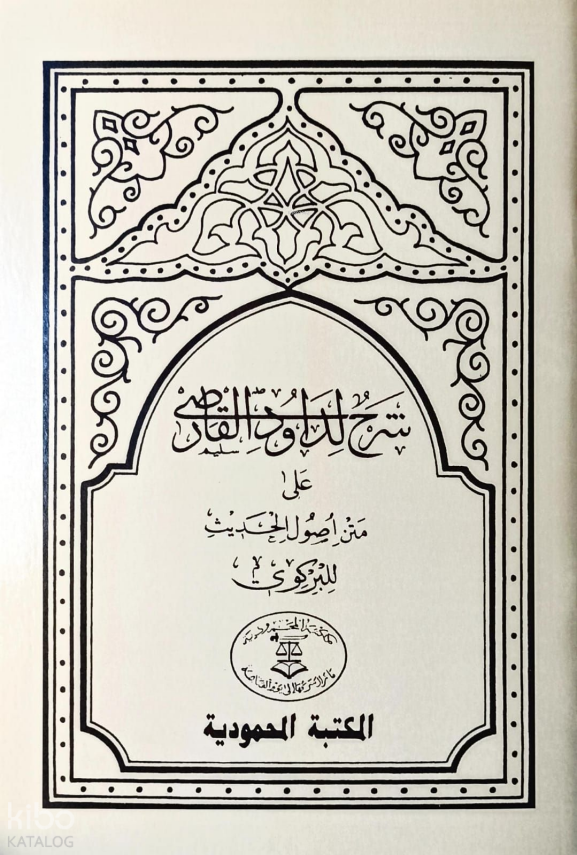 شَرْحُ لِدَاوُدَ القَارْصِي
سليم
عَلَى
مَتْنِ اُصُولِ الحَدِيثِ
لِلْبِرْكَوِي
المكتبة المحمودية
kibo
KATALOG